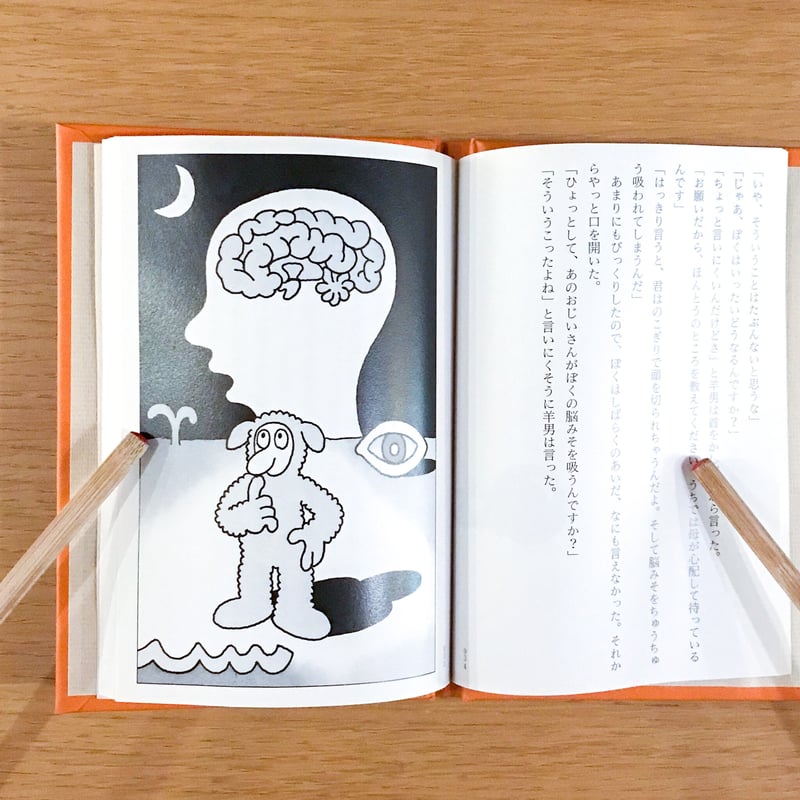 「いや、そういうことはたぶんないと思うな」
「じゃあ、ぼくはいったいどうなるんですか?」
「ちょっと言いにくいんだけどさ」と羊男は首をから言った。
「お願いだから、ほんとうのところを教えてください。うちでは母が心配して待っている
んです」
「はっきり言うと、君はのこぎりで頭を切られちゃうんだよ。そして脳みそをちゅうちゅ
う吸われてしまうんだ」
あまりにもびっくりしたので、ぼくはしばらくのあいだ、なにも言えなかった。それか
らやっと口を開いた。
「ひょっとして、あのおじいさんがぼくの脳みそを吸うんですか?」
「そういうこったよね」と言いにくそうに羊男は言った。
034